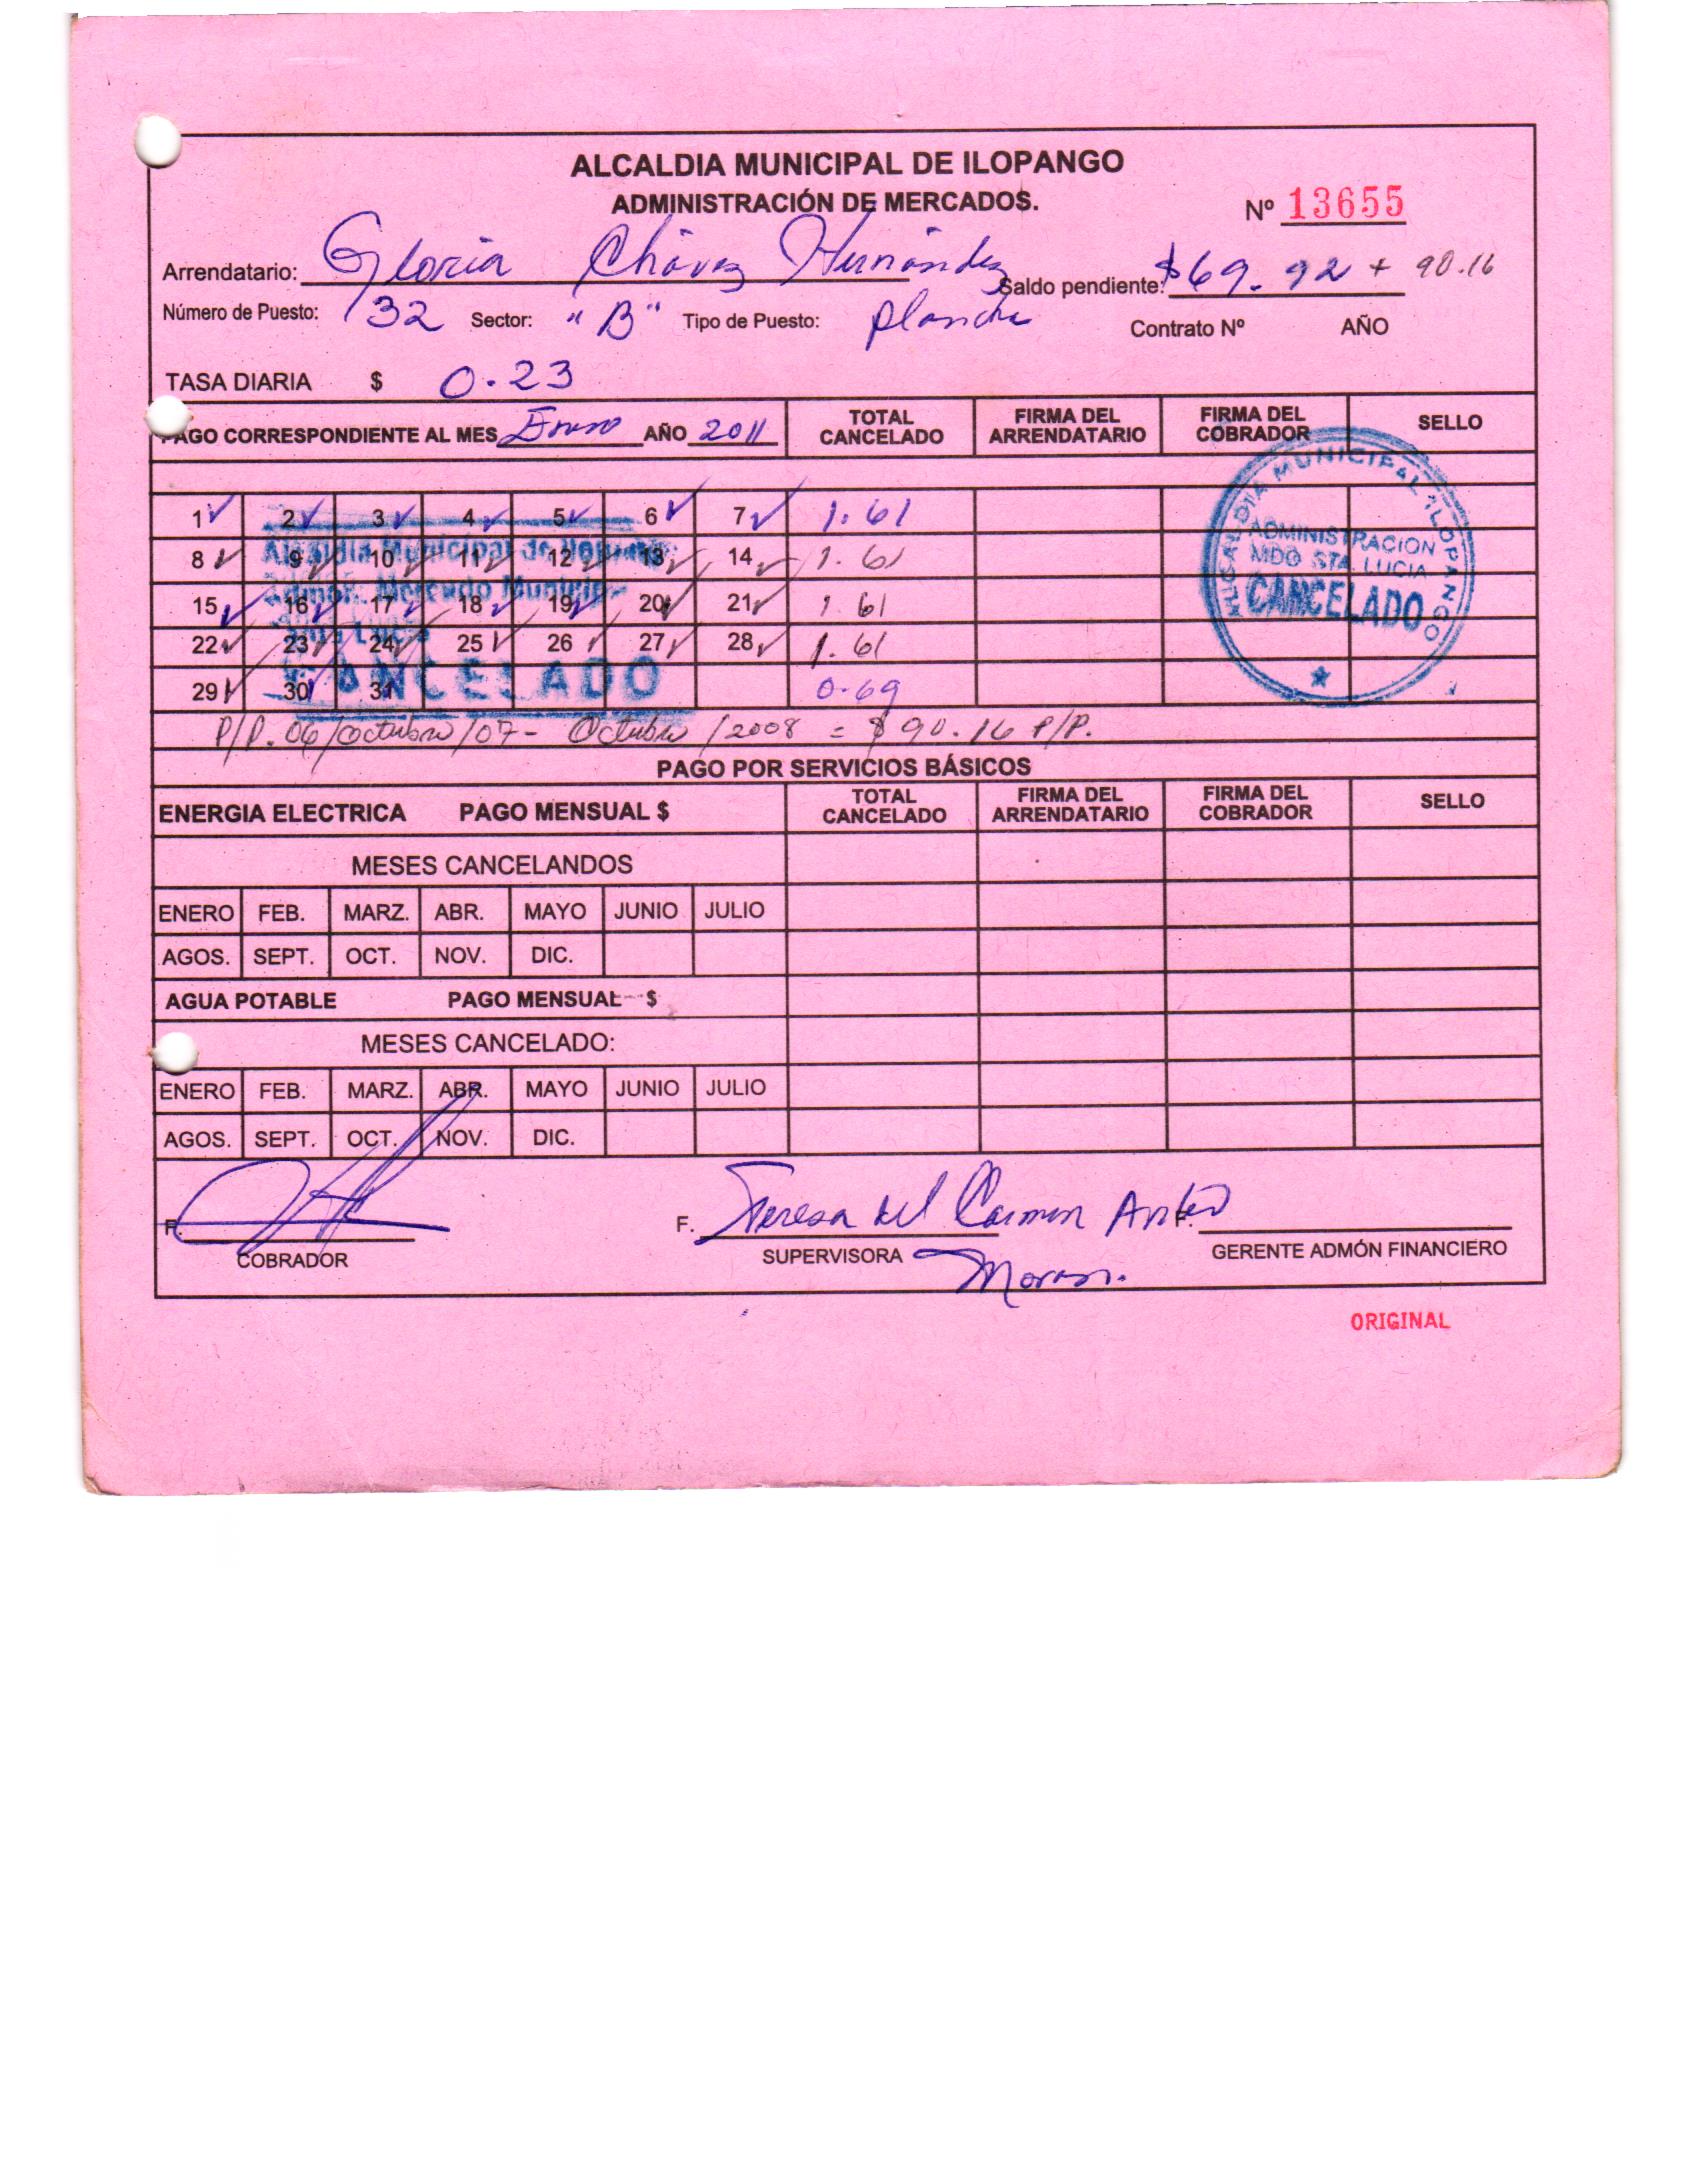 ALCALDIA MUNICIPAL DE ILOPANGO
ADMINISTRACIÓN DE MERCADOS.
Nº 13655
Arrendatario: Gloria Chávez Hernández Saldo pendiente: $69.92 + 90.16
Número de Puesto: 132 Sector: "B" Tipo de Puesto: plancha Contrato Nº AÑO
TASA DIARIA $ 0.23
PAGO CORRESPONDIENTE AL MES Enero AÑO 2011 TOTAL CANCELADO FIRMA DEL ARRENDATARIO FIRMA DEL COBRADOR SELLO
1 2 3 4 5 6 7 1.61
8 9 10 11 12 13 14 1.61
15 16 17 18 19 20 21 1.61
22 23 24 25 26 27 28 1.61
29 30 31 0.69
Alcaldia Municipal de Ilopango
Admón. Mercado Municip
CANCELADO
ALCALDIA MUNICIPAL ILOPANGO
ADMINISTRACION
MDO STA. LUCIA
CANCELADO
P/P. 06/Octubre/07- Octubre/2008 = $90.16 P/P.
PAGO POR SERVICIOS BÁSICOS
ENERGIA ELECTRICA PAGO MENSUAL $ TOTAL CANCELADO FIRMA DEL ARRENDATARIO FIRMA DEL COBRADOR SELLO
MESES CANCELANDOS
ENERO FEB. MARZ. ABR. MAYO JUNIO JULIO
AGOS. SEPT. OCT. NOV. DIC.
AGUA POTABLE PAGO MENSUAL $
MESES CANCELADO:
ENERO FEB. MARZ. ABR. MAYO JUNIO JULIO
AGOS. SEPT. OCT. NOV. DIC.
F. F. Teresa del Carmen F.
COBRADOR SUPERVISORA GERENTE ADMÓN FINANCIERO
ORIGINAL